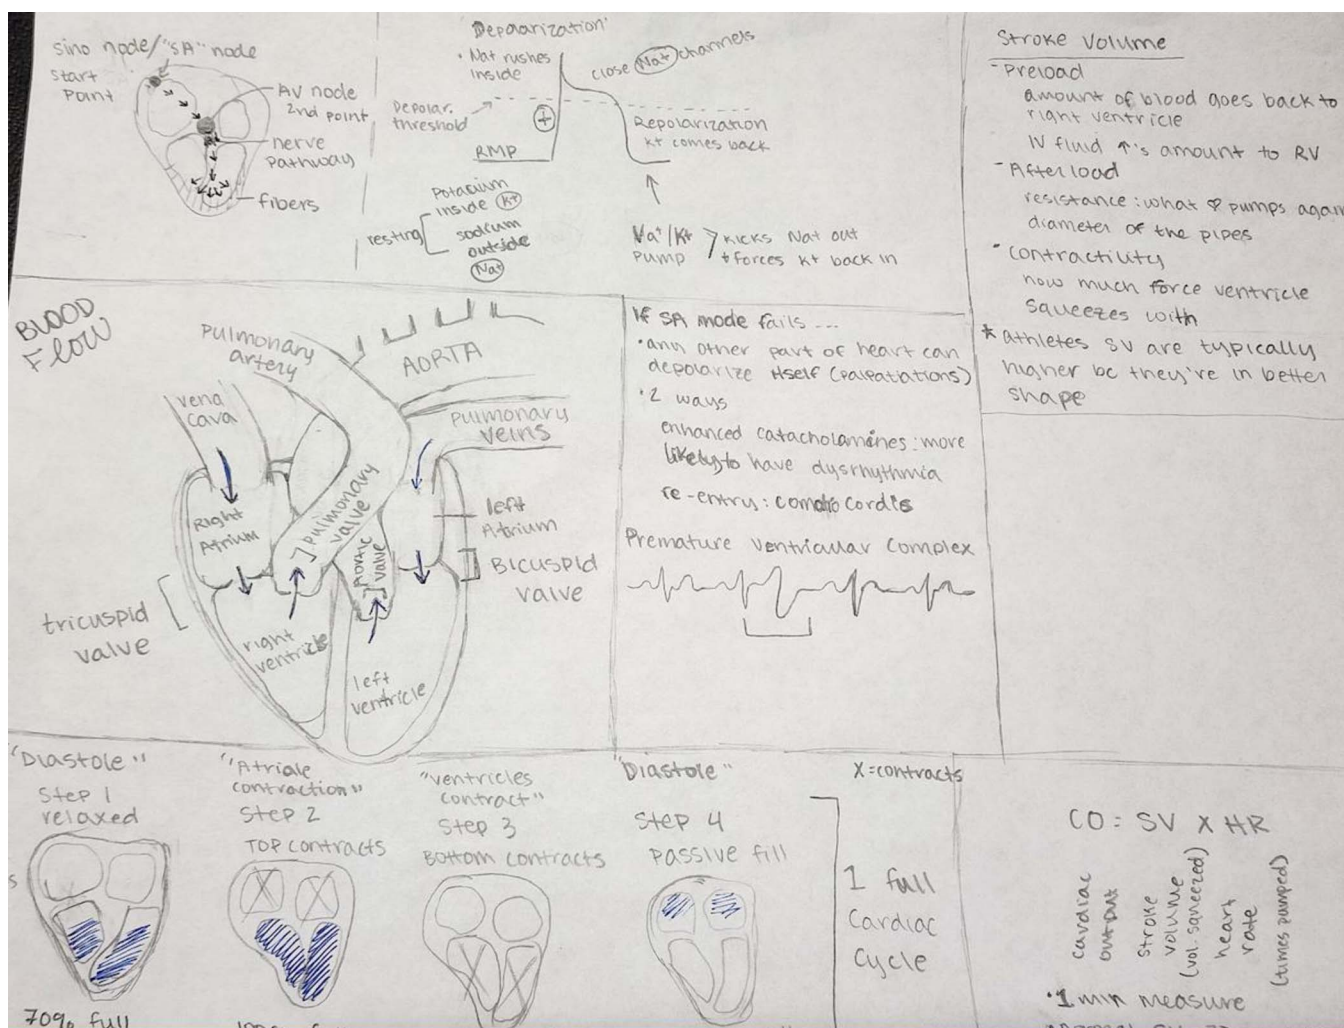 sino node/"SA" node
start
point
AV node
2nd point
nerve
pathway
fibers
'Depolarization'
· Na+ rushes
inside
close Na+ channels
Depolar.
threshold
+
Repolarization
K+ comes back
RMP
resting
Potacium
inside K+
sodium
outside
Na+
Na+/K+ kicks Na+ out
Pump + forces K+ back in
Stroke Volume
- Preload
amount of blood goes back to
right ventricle
IV fluid ↑'s amount to RV
- Afterload
resistance: what ♡ pumps again
diameter of the pipes
- contractility
how much force ventricle
squeezes with
* athletes SV are typically
higher bc they're in better
shape
BLOOD
FLOW
Pulmonary
artery
AORTA
vena
cava
Pulmonary
veins
Right
Atrium
pulmonary
valve
Aortic
valve
left
Atrium
Bicuspid
valve
tricuspid
valve
right
ventricle
left
ventricle
If SA node fails ...
· any other part of heart can
depolarize itself (palpatations)
· 2 ways
enhanced catacholamines: more
likely to have dysrhythmia
re-entry: comotio cordis
Premature Ventricular Complex
"Diastole"
Step 1
relaxed
s
70% full
"Atriale
contraction"
Step 2
TOP contracts
"ventricles
contract"
Step 3
Bottom contracts
"Diastole"
Step 4
passive fill
X=contracts
1 full
Cardiac
Cycle
CO = SV X HR
cardiac
output
stroke
volume
(vol. squeezed)
heart
rate
(times pumped)
· 1 min measure